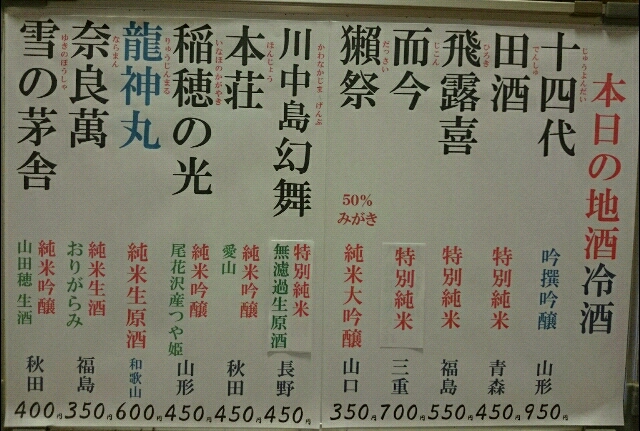 本日の地酒冷酒
じゅうよんだい
十四代
吟撰吟醸
山形
950円
でんしゅ
田酒
特別純米
青森
450円
ひろき
飛露喜
特別純米
福島
550円
じこん
而今
特別純米
三重
700円
だっさい
獺祭
50%
みがき
純米大吟醸
山口
350円
かわなかじま げんぶ
川中島幻舞
特別純米
無濾過生原酒
長野
450円
ほんじょう
本荘
純米吟醸
愛山
秋田
450円
いなほのかがやき
稲穂の光
純米吟醸
尾花沢産つや姫
山形
450円
りゅうじんまる
龍神丸
純米生原酒
和歌山
600円
ならまん
奈良萬
純米生酒
おりがらみ
福島
350円
ゆきのぼうしゃ
雪の茅舎
純米吟醸
山田穂 生酒
秋田
400円